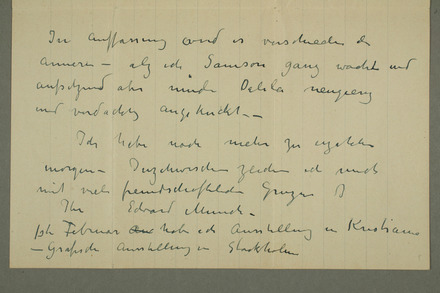 In Auffassung wird es verschieden der
anderen – als ich Samson ganz wacht und
aufsitzend aber müde Delila neugierig
und verdächtig angekuckt –
Ich habe noch mehr zu erzählen
morgen – Inzwischen zeichne ich mich
mit viele freundschaftlichen Grüssen
Ihr Edvard Munch –
Februar habe ich Ausstellung in Kristiania
– Grafische Ausstellung in Stockholm